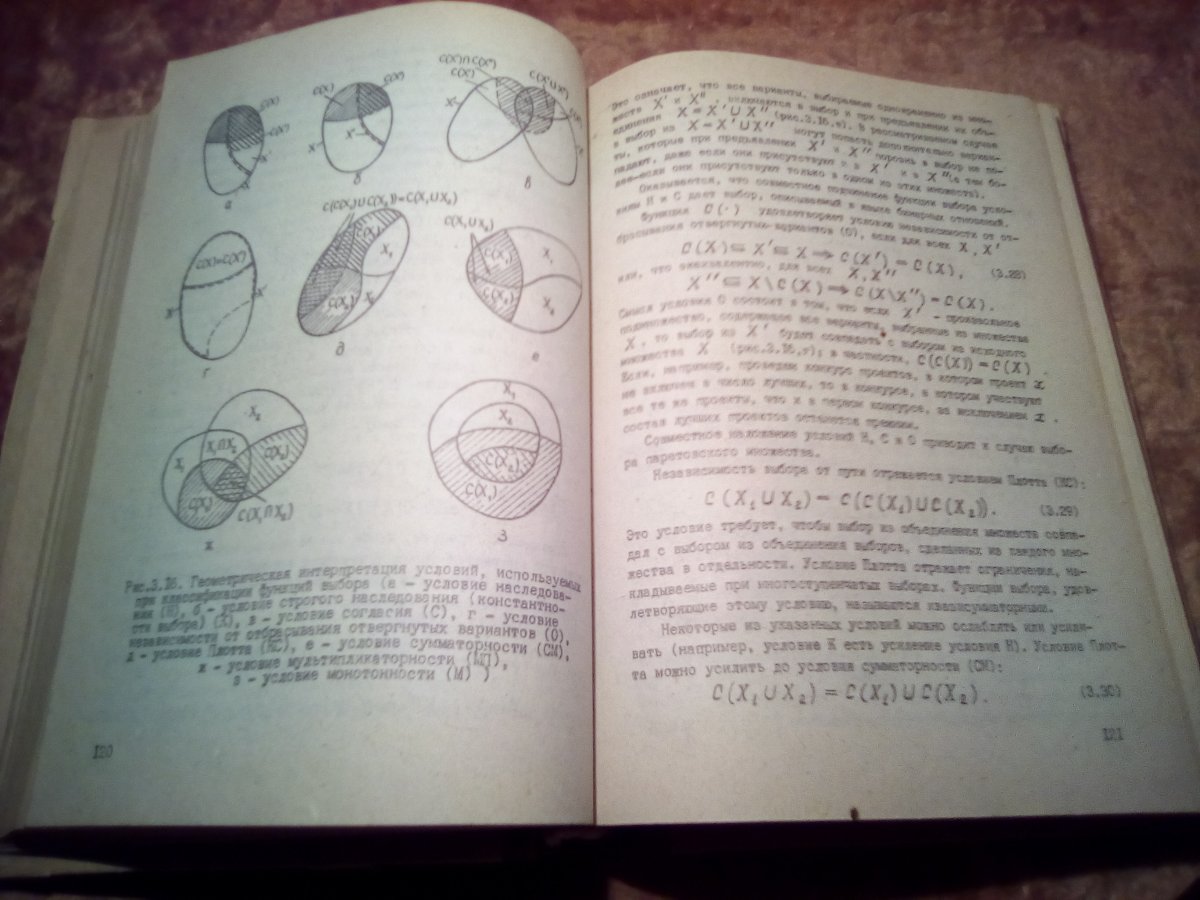 C(X')∩C(X")
C(X')
C(X'∪X")
C(X)
C(X')
X'
X
а
C(X)
C(X')
X'
X
б
X'
в
C(X)=C(X')
X
X'
г
C(C(X₁)∪C(X₂))=C(X₁∪X₂)
C(X₁)
X₁
C(X₂)
X₂
д
C(X₁∪X₂)
C(X₁)
X₁
C(X₂)
X₂
е
X₂
X₁∩X₂
X₁
C(X₂)
C(X₁)
C(X₁∩X₂)
ж
X₁
X₂
C(X₂)
C(X₁)
З
Рис.3.16. Геометрическая интерпретация условий, используемых
при классификации функций выбора (а – условие наследова-
ния (Н), б – условие строгого наследования (константно-
сти выбора) (К), в – условие согласия (С), г – условие
независимости от отбрасывания отвергнутых вариантов (О),
д – условие Плотта (КС), е – условие сумматорности (СМ),
ж – условие мультипликаторности (МП),
з – условие монотонности (М) )
120
Это означает, что все варианты, выбираемые одновременно из мно-
жеств X' и X", включаются в выбор и при предъявлении их объ-
единения X = X'∪X" (рис.3.16,в). В рассматриваемом случае
в выбор из X = X'∪X" могут попасть дополнительно вариан-
ты, которые при предъявлении X' и X" порознь в выбор не по-
падают, даже если они присутствуют и в X' и в X" (а тем бо-
лее–если они присутствуют только в одном из этих множеств).
Оказывается, что совместное подчинение функции выбора усло-
виям Н и С дает выбор, описываемый в языке бинарных отношений.
Функция C(·) удовлетворяет условию независимости от от-
брасывания отвергнутых вариантов (О), если для всех X, X'
C(X) ⊆ X' ⊆ X ⇒ C(X') = C(X), (3.28)
или, что эквивалентно, для всех X, X"
X" ⊆ X\C(X) ⇒ C(X\X") = C(X).
Смысл условия О состоит в том, что если X' – произвольное
подмножество, содержащее все варианты, выбранные из множества
X, то выбор из X' будет совпадать с выбором из исходного
множества X (рис.3.16,г); в частности, C(C(X)) = C(X).
Если, например, проведен конкурс проектов, в котором проект x
не включен в число лучших, то в конкурсе, в котором участвуют
все те же проекты, что и в первом конкурсе, за исключением x,
состав лучших проектов останется прежним.
Совместное наложение условий Н, С и О приводит к случаю выбо-
ра паретовского множества.
Независимость выбора от пути отражается условием Плотта (КС):
C(X₁∪X₂) = C(C(X₁)∪C(X₂)). (3.29)
Это условие требует, чтобы выбор из объединения множеств совпа-
дал с выбором из объединения выборов, сделанных из каждого мно-
жества в отдельности. Условие Плотта отражает ограничения, на-
кладываемые при многоступенчатых выборах. Функции выбора, удов-
летворяющие этому условию, называются квазисумматорными.
Некоторые из указанных условий можно ослаблять или усили-
вать (например, условие К есть усиление условия Н). Условие Плот-
та можно усилить до условия сумматорности (СМ):
C(X₁∪X₂) = C(X₁)∪C(X₂). (3.30)
121